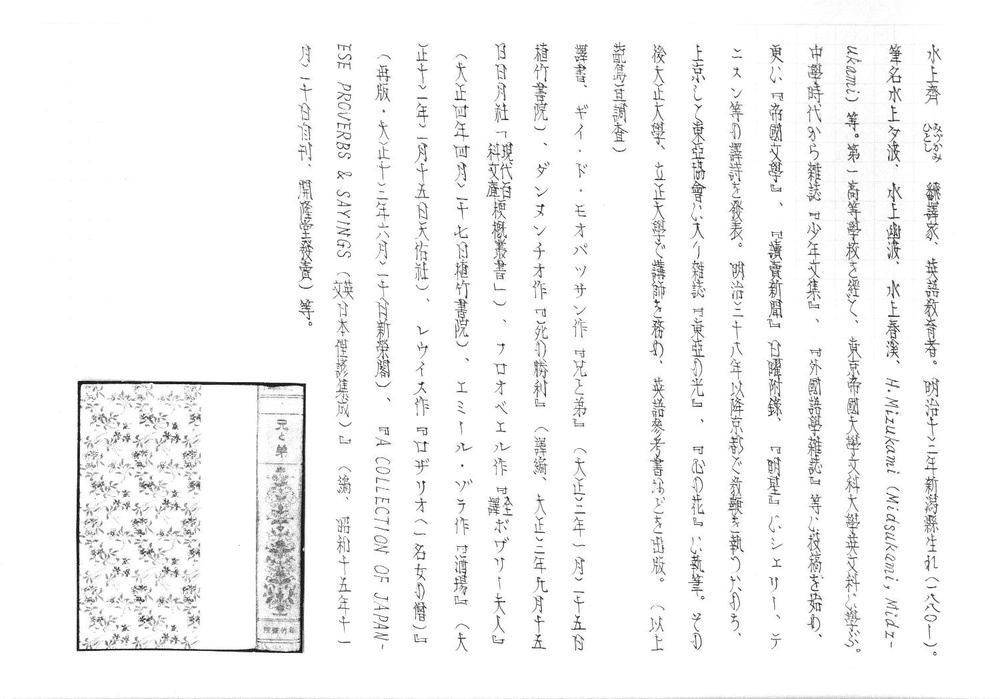 水上齊 みづかみひとし 飜譯家、英語敎育者。明治十三年新潟縣生れ(一八八〇—)。
筆名水上夕波、水上幽波、水上春溪、H.Mizukami (Midsukami, Midz-
ukami) 等。第一高等學校を經て、東京帝國大學文科大學英文科に學ぶ。
中學時代から雜誌『少年文集』、『外國語學雜誌』等に投稿を始め、
更に『帝國文學』、『讀賣新聞』日曜附錄、『明星』にシェリー、テ
ニスン等の譯詩を發表。明治三十八年以降京都で敎鞭を執つたのち、
上京して東亞協會に入り雜誌『東亞の光』、『心の花』に執筆。その
後大正大學、立正大學で講師を務め、英語參考書などを出版。(以上
莊島亘調査)
譯書、ギイ・ド・モオパッサン作『兄と弟』(大正三年一月二十五日
植竹書院)、ダンヌンチオ作『死の勝利』(譯編、大正三年九月十五
日日月社「現代百科文庫梗槪叢書」)、フロオベエル作『全譯ボワリー夫人』
(大正四年四月二十七日植竹書院)、エミール・ゾラ作『酒場』(大
正十二年二月十五日天佑社)、レウイス作『ロザリオ(一名女の僧)』
(再版・大正十三年六月二十日新榮閣)、『A COLLECTION OF JAPAN-
ESE PROVERBS & SAYINGS (英文日本俚諺集成)』(編、昭和十五年十一
月二十日自刊、開隆堂發賣)等。
兄と弟
植竹書院